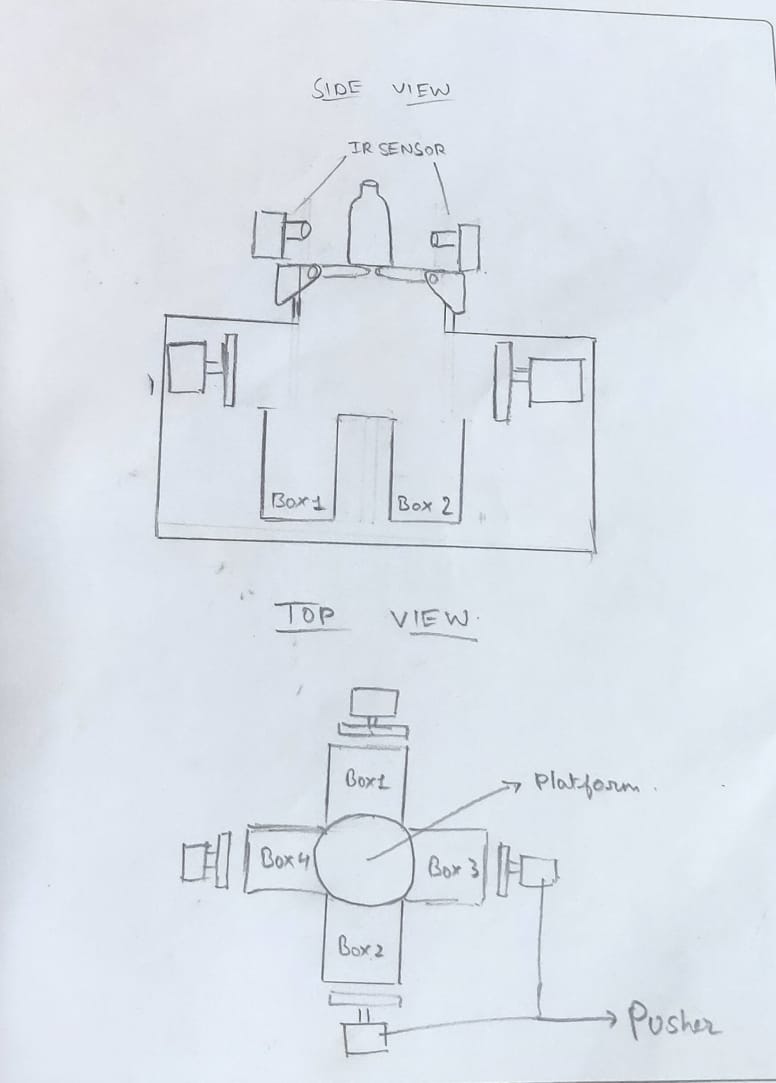 SIDE VIEW
IR SENSOR
Box 1
Box 2
TOP VIEW.
Box 1
Platform.
Box 4
Box 3
Box 2
Pusher